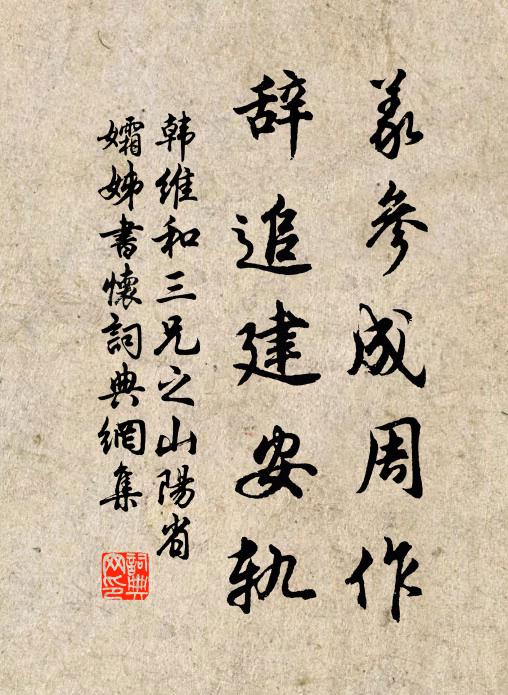 义参成周作
辞追建安轨
韩维和三兄之山陽省
孀姊書懷詞典網集
詞典
网印